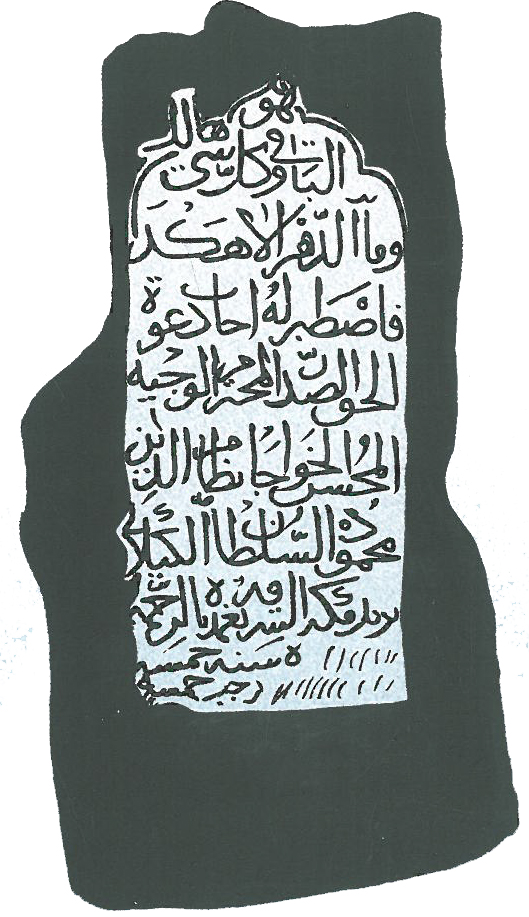 هو
الباقي وكل شي هالك
وما الدهر الا هكذا
فاصطبر له اجاب دعوة
الحق الصدر المحترم الوجيه
المحسن الخواجا نظام الدين
محمود السلطان الكيلا
مكة الشريفة بالرحمة
سنة خمس
رجب خمس